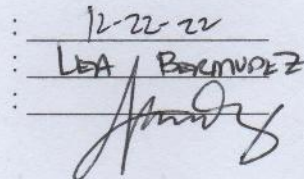 : 12-22-22
: LEA BERMUDEZ
: